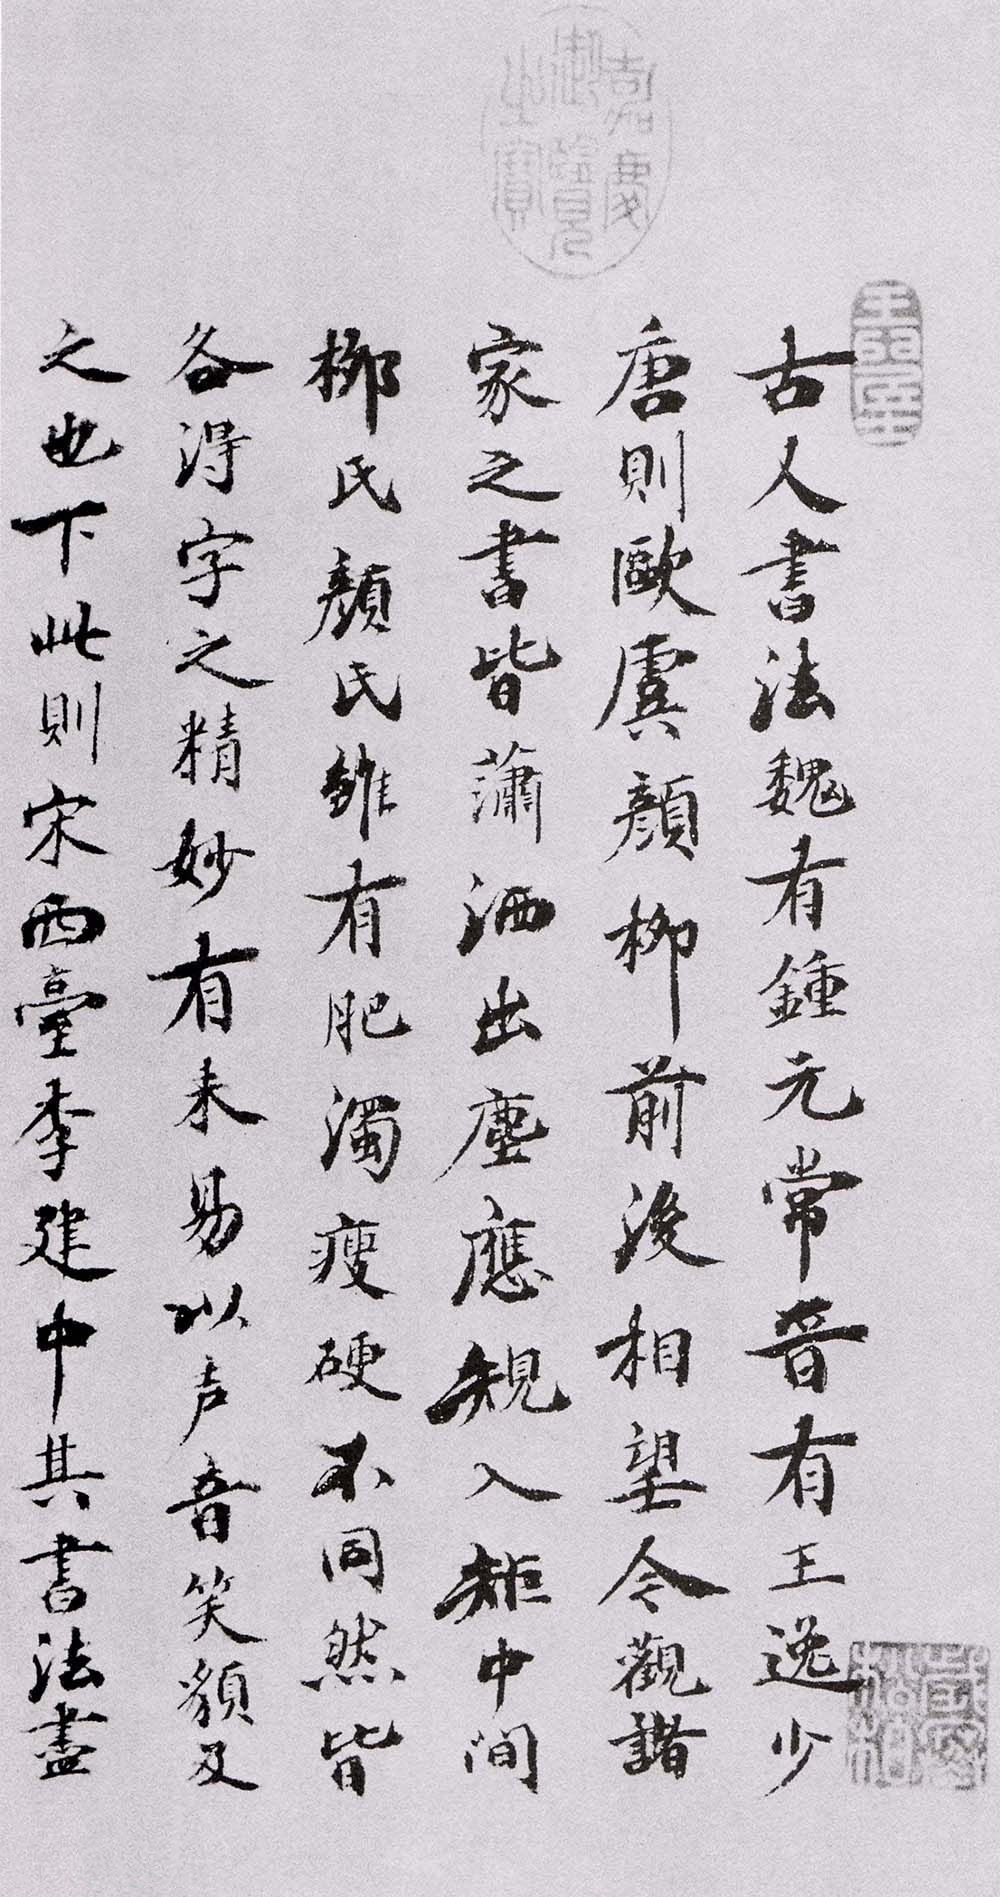 嘉慶
御覽
之寶
古人書法魏有鍾元常晉有王逸少
唐則歐虞顏柳前後相望今觀諸
家之書皆蕭洒出塵應規入矩中間
柳氏顏氏雖有肥濁瘦硬不同然皆
各得字之精妙有未易以声音笑貌及
之也下此則宋西臺李建中其書法盡